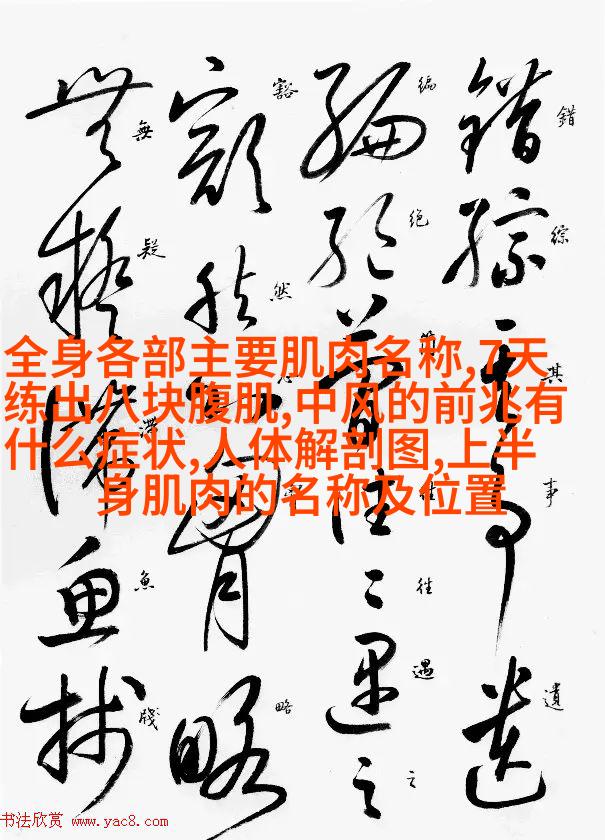 錯綜其事遺
编绝簡往往遇之
豁然心胸略
無疑滯魚牋
全身各部主要肌肉名称,7天
练出八块腹肌,中风的前兆有
什么症状,人体解剖图,上半
身肌肉的名称及位置
书法欣赏 www.yac8.com